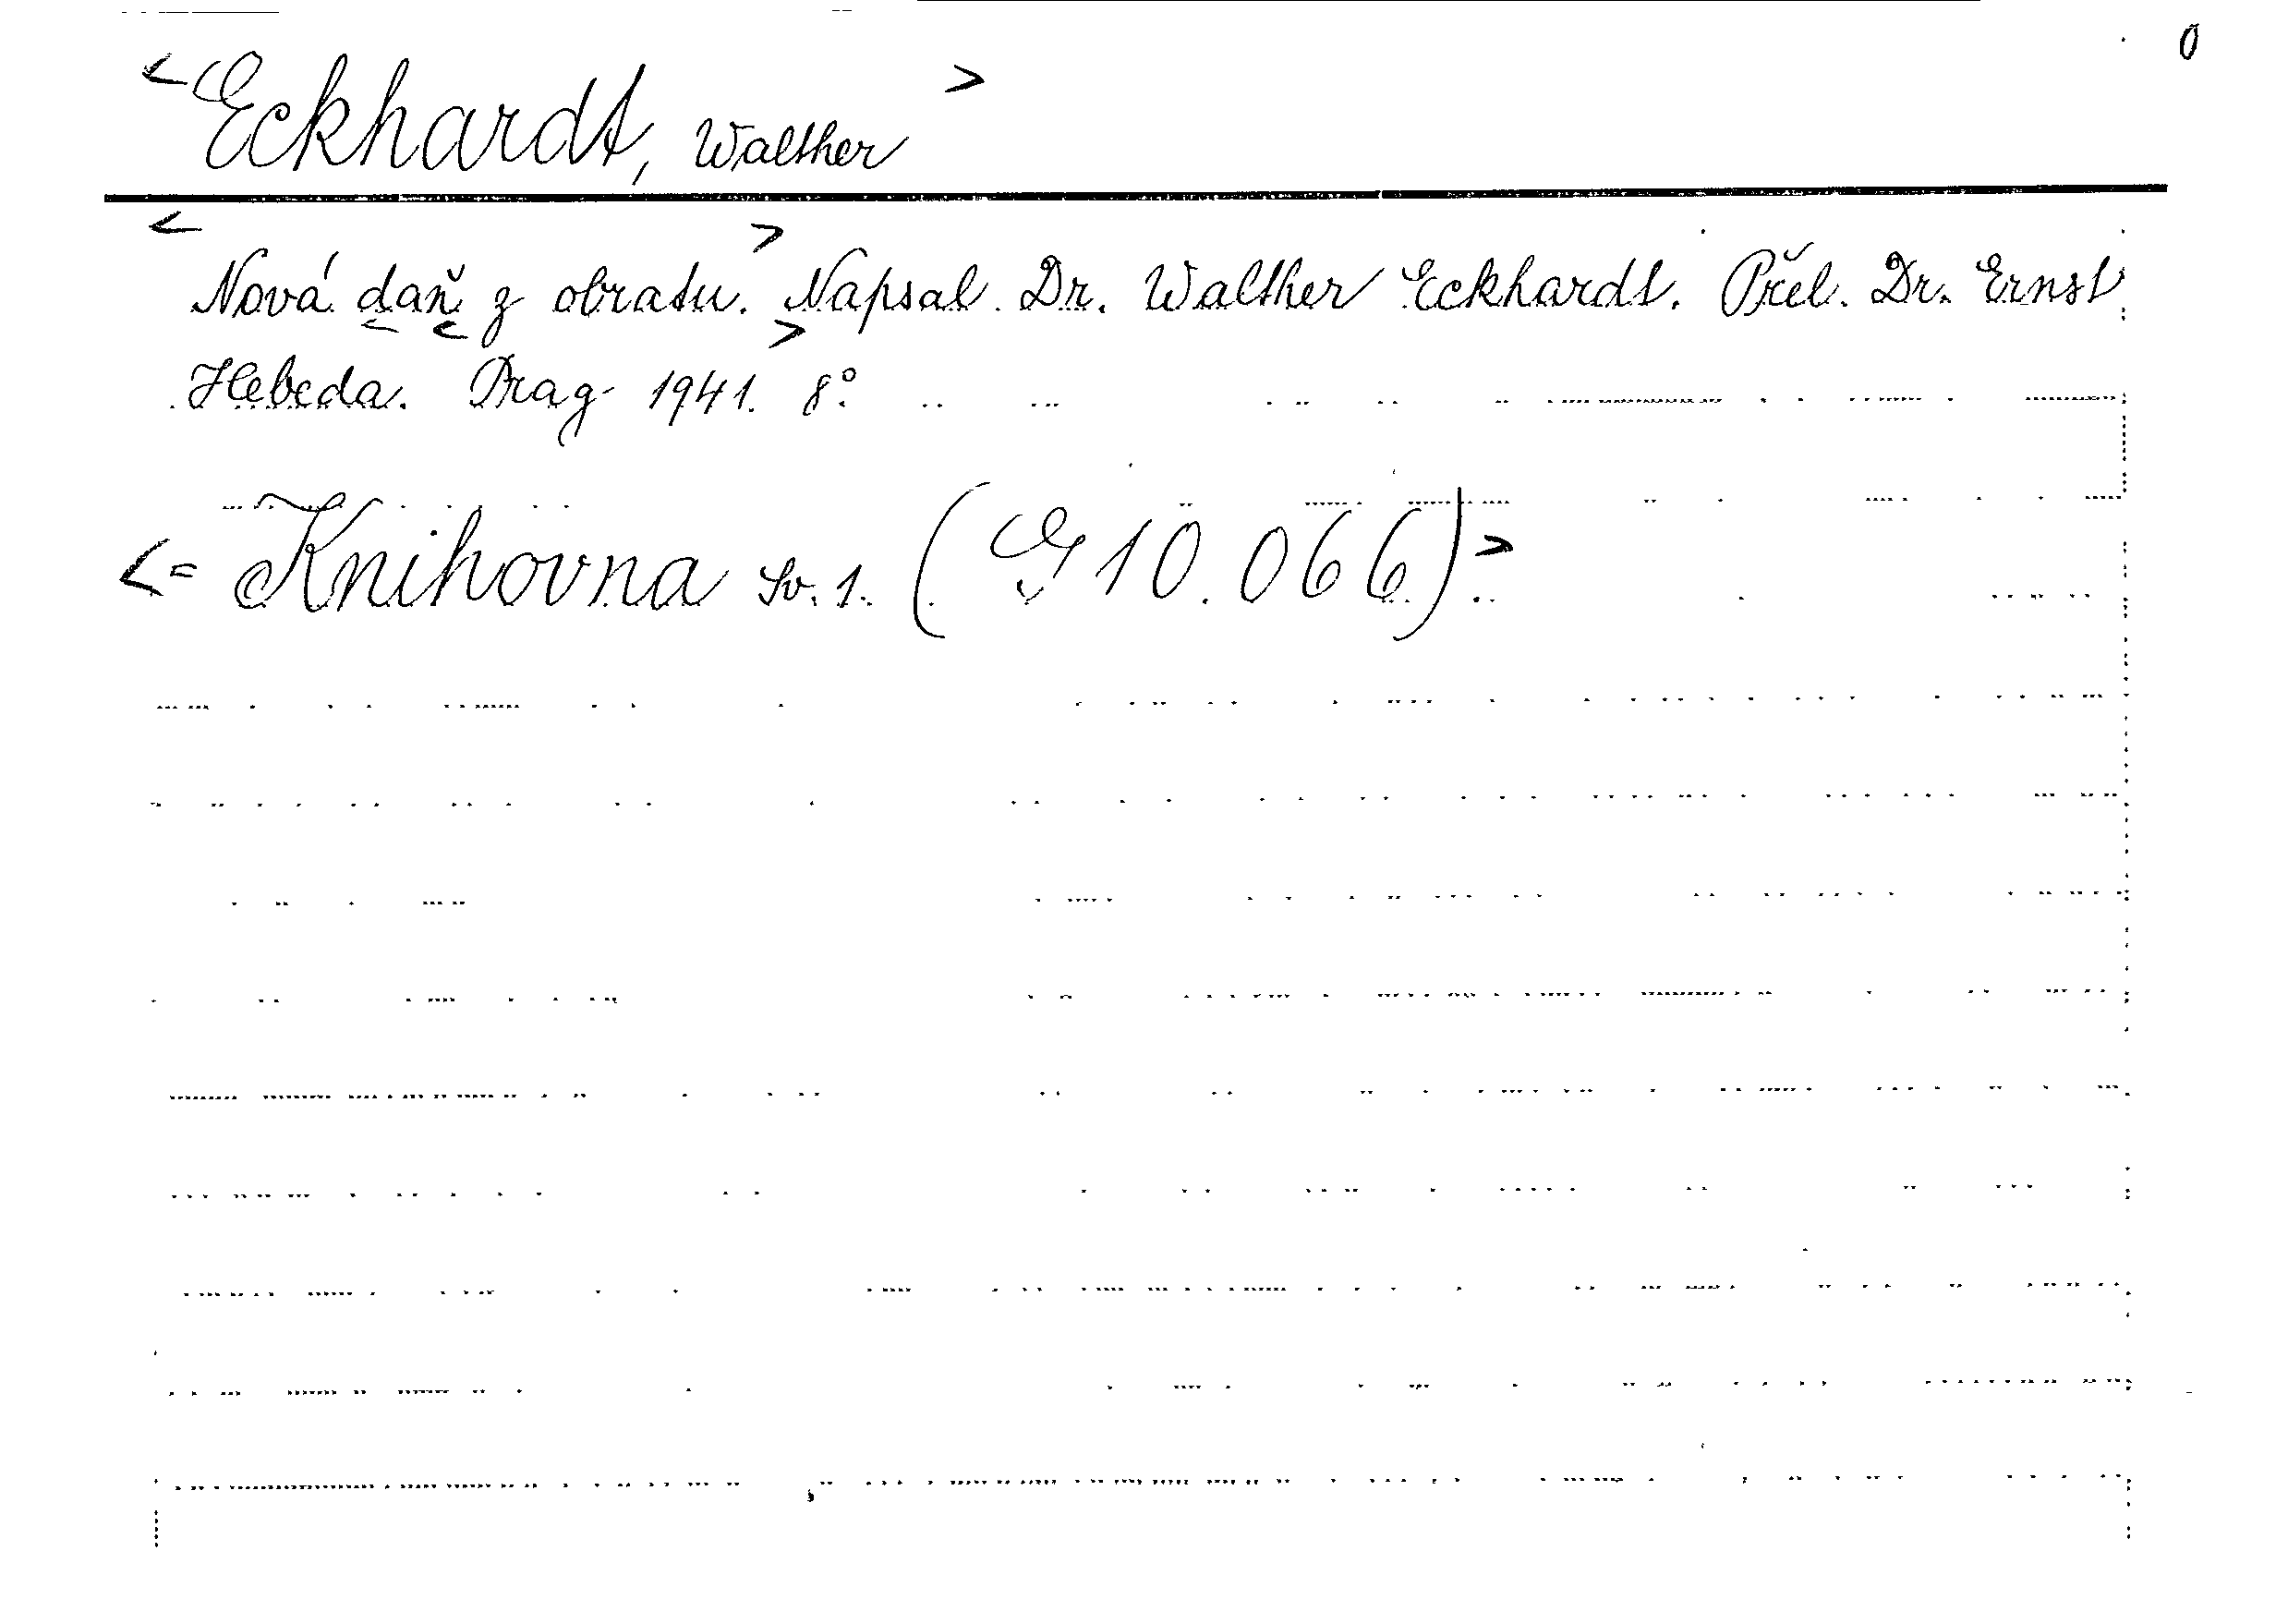 <Eckhardt, Walther>
<Nová daň z obratu.> Napsal Dr. Walther Eckhardt. Přel. Dr. Ernst
Hebeda. <Prag 1941.> 8°.
<= Knihovna Sv. 1. ( 10.066)>